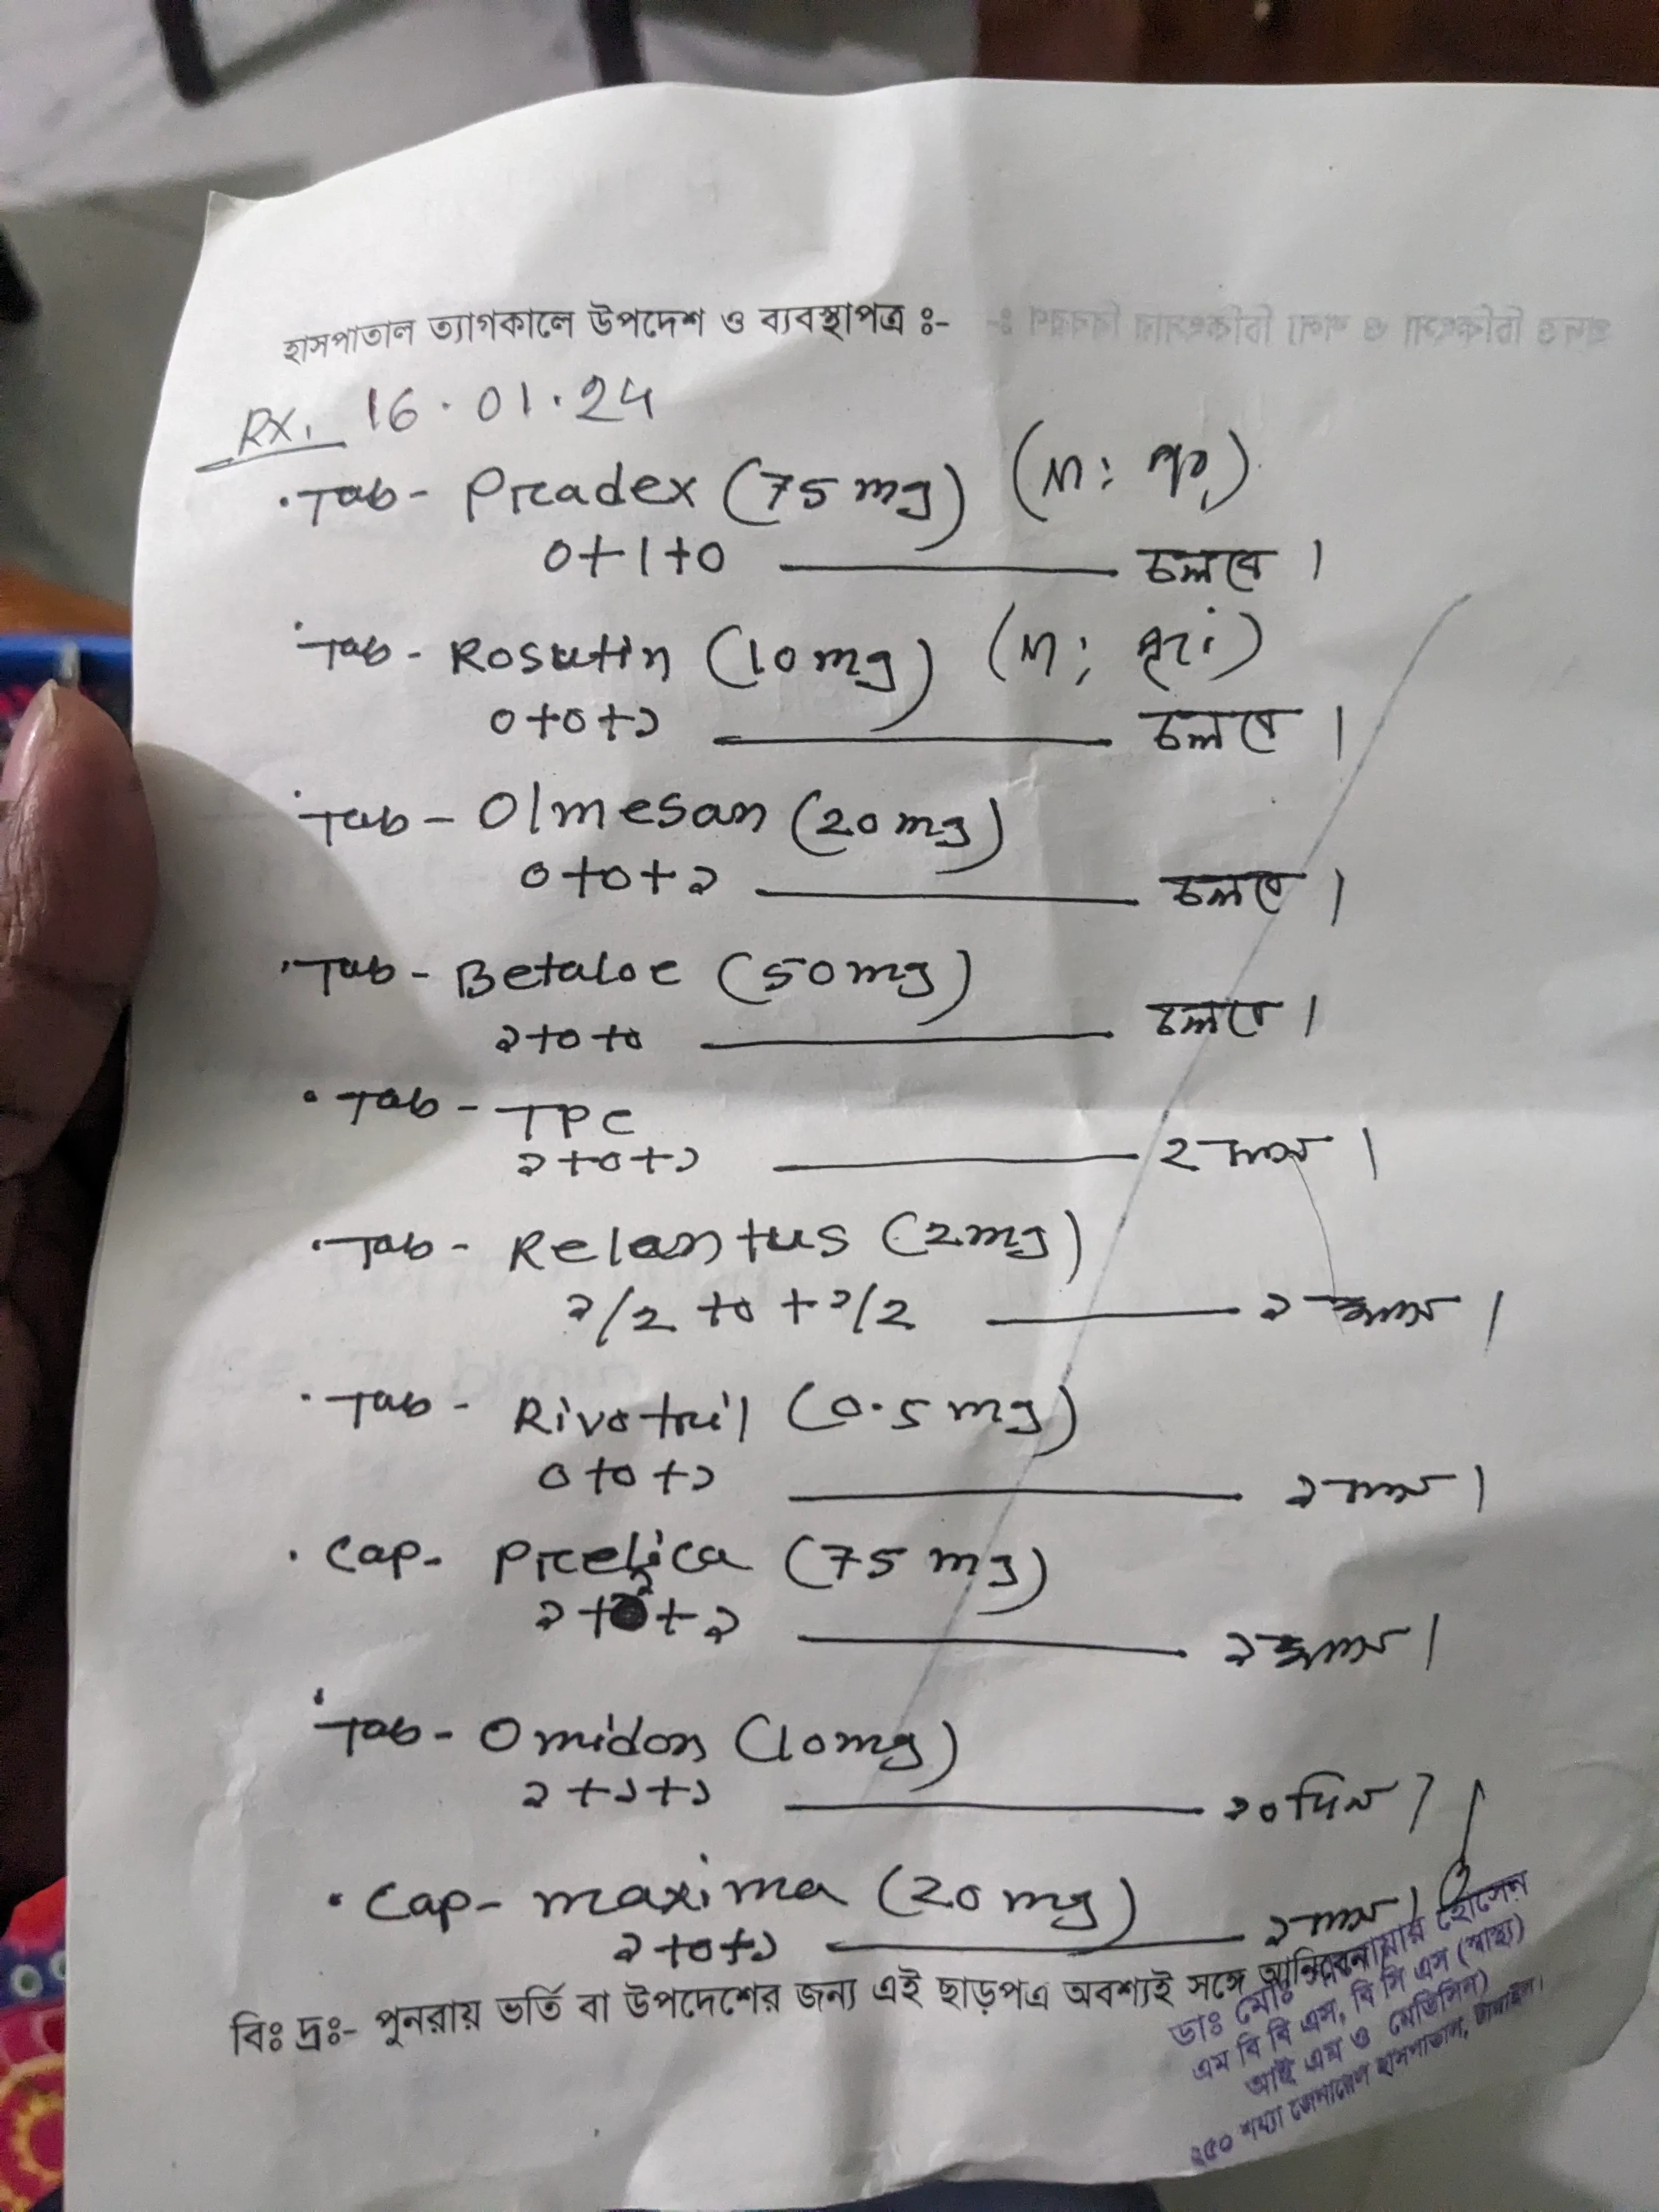 হাসপাতাল ত্যাগকালে উপদেশ ও ব্যবস্থাপত্র ঃ-
RX. 16.01.24
Tab- Pradex (75 mg) (N:
0+1+0 — চলবে।
Tab- Rosutin (10mg) (N;
0+0+১ — চলবে।
Tab- Olmesan (20mg)
0+0+১ — চলবে।
Tab- Betaloc (50mg)
১+0+0 — চলবে।
Tab- TPC
১+0+১ — ২ মাস।
Tab- Relentus (2mg)
১/2 +0 +১/2 — ১ মাস।
Tab- Rivotril (0.5 mg)
0+0+১ — ১ মাস।
Cap- Prelica (75 mg)
১+0+১ — ১ মাস।
Tab- Omidon (10mg)
১+১+১ — ১০ দিন।
Cap- maxima (20 mg)
১+0+১ — ১ মাস।
বিঃ দ্রঃ- পুনরায় ভর্তি বা উপদেশের জন্য এই ছাড়পত্র অবশ্যই সঙ্গে আনিবেন
ডাঃ মোঃ হোসেন
এম বি বি এস, বি সি এস (স্বাস্থ্য)
আই এম ও মেডিসিন)
২৫০ শয্যা জেনারেল হাসপাতাল,